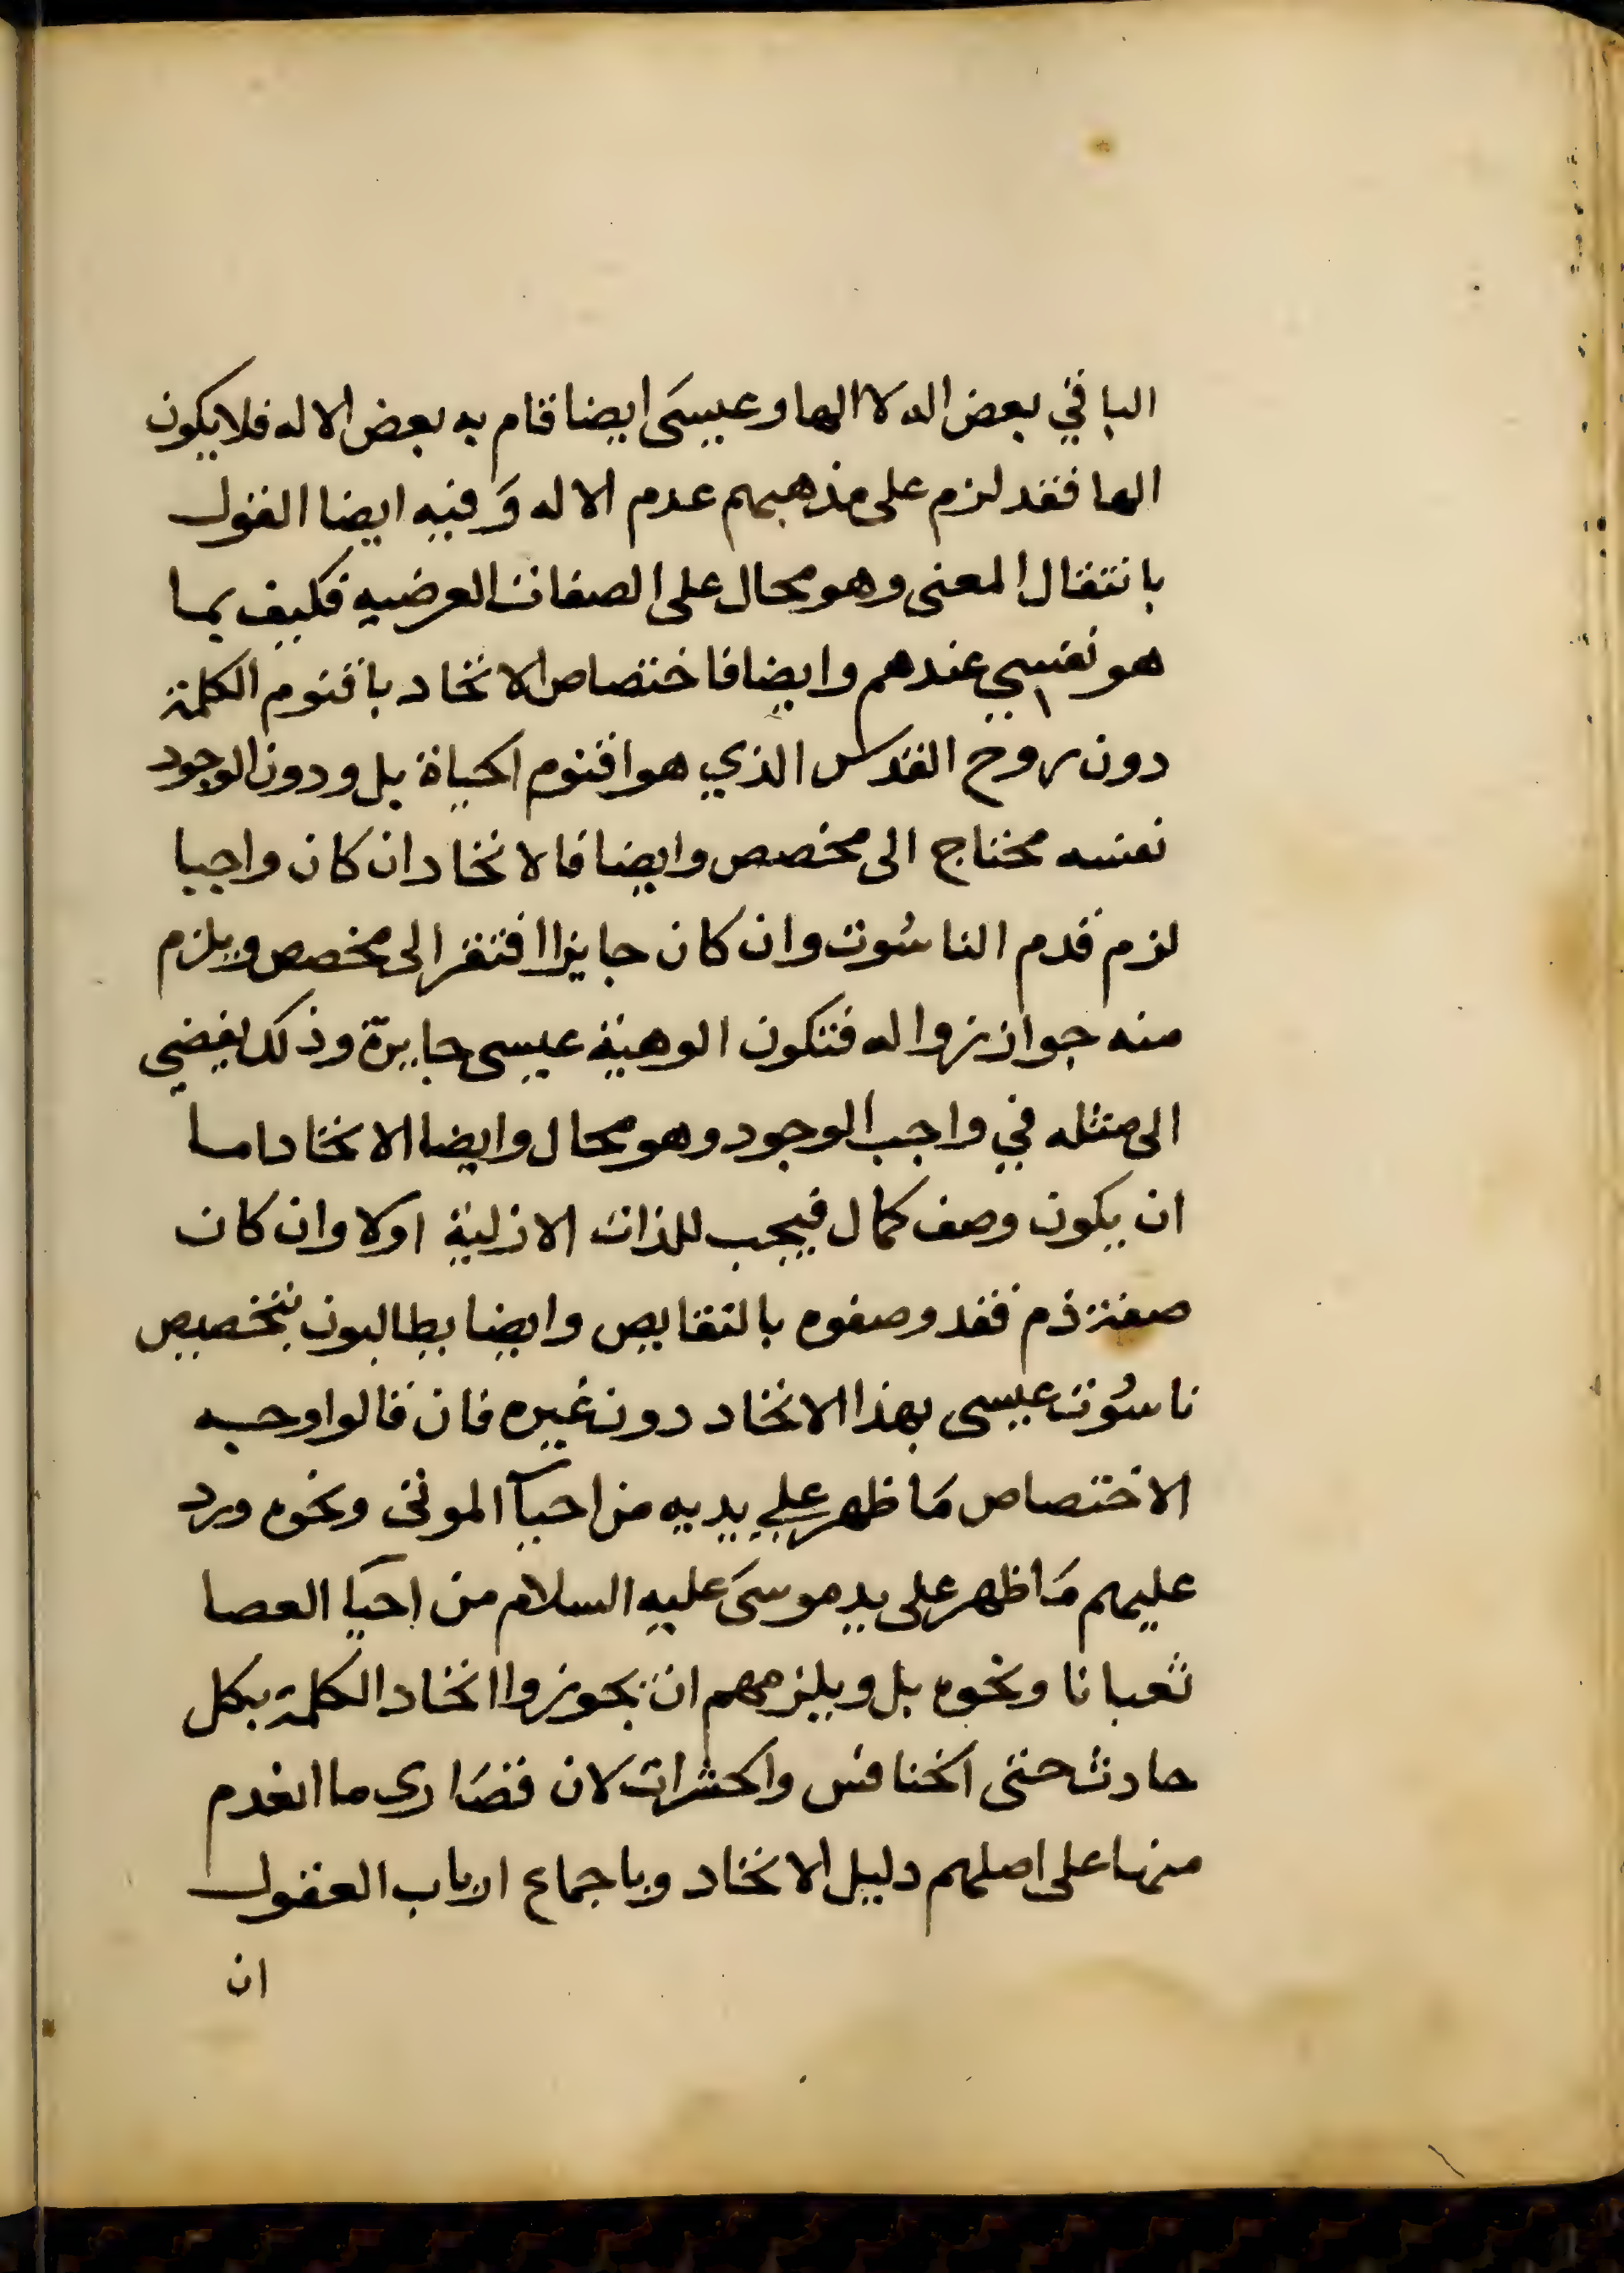 الباقي بعض اله لا الها وعيسَى ايضا قام به بعض الاله فلا يكون
الها فقد لزم على مذهبهم عدم الاله وَفيه ايضا القول
بانتقال المعنى وهو محال على الصفات العرضيه فكيف بما
هو نفسي عندهم وايضا فاختصاص الاتحاد باقنوم الكلمة
دون روح القدس الذي هو اقنوم الحياة بل ودون الوجود
نفسه محتاج الى مخصص وايضا فالاتحاد ان كان واجبا
لزم قدم الناسُوت وان كان جايزا افتقر الى مخصص ويلزم
منه جواز زواله فتكون الوهية عيسى جايزة وذلك يفضي
الى مثله في واجب الوجود وهو محال وايضا الاتحاد اما
ان يكون وصف كمال فيجب للذات الازلية اولا وان كان
صفة ذم فقد وصفوه بالنقايص وايضا يطالبون بتخصيص
ناسُوت عيسى بهذا الاتحاد دون غيره فان قالوا وجه
الاختصاص مَا ظهر علي يديه من احيآ الموتى ونحوه ورد
عليهم مَا ظهر على يد موسَى عليه السلام من احيا العصا
ثعبانا ونحوه بل ويلزمهم ان يجوزوا اتحاد الكلمة بكل
حادث حتى الخنافس والحشرات لان قصَارى ما انعدم
منها على اصلهم دليل الاتحاد وباجماع ارباب العقول
ان